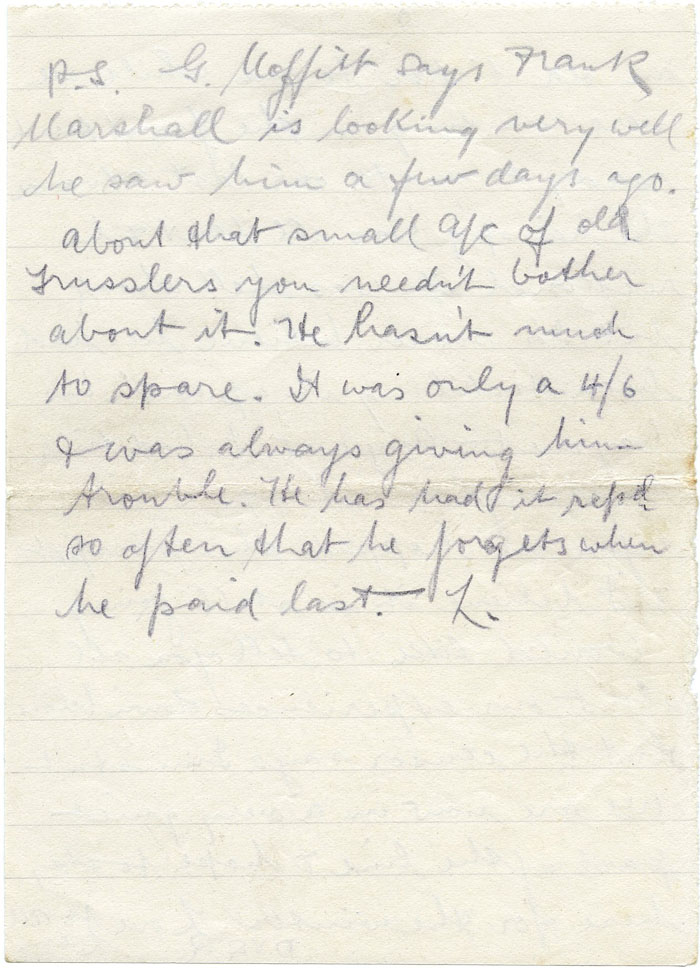 P.S. G. Moffitt says Frank
Marshall is looking very well
he saw him a few days ago.
About that small A/C of old
Trusslers you needn't bother
about it. He hasn't much
to spare. It was only a 4/6
& was always giving him
trouble. He has had it repd
so often that he forgets when
he paid last. L.